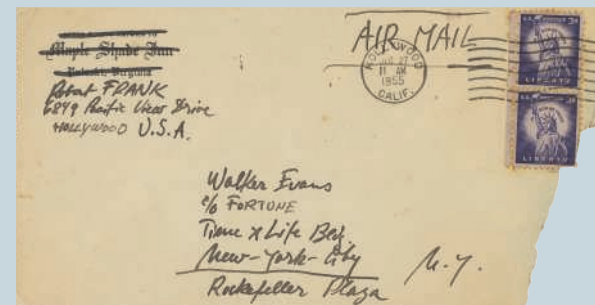 Maple Shade Inn
Pulaski, Virginia
Robert FRANK
6849 Pacific View Drive
HOLLYWOOD U.S.A.
AIR MAIL
HOLLYWOOD
27
11 AM
1955
CALIF.
U.S. POSTAGE 3¢
LIBERTY
U.S. POSTAGE 3¢
LIBERTY
Walker Evans
c/o FORTUNE
Time x Life Bldg
New-York-City N.Y.
Rockefeller Plaza